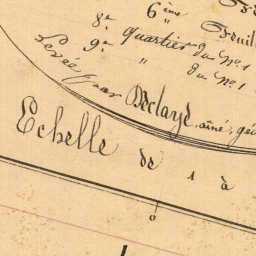 6ème Feuil
8e Quartier du No 1
9e " du No 1
Levée par Declaye aîné, géo
Echelle de 1 à
0